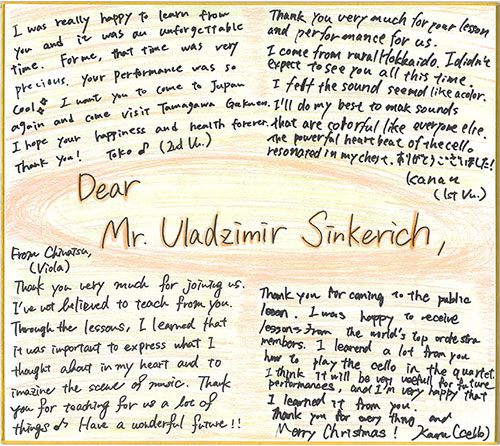 I was really happy to learn from
you and it was an unforgettable
time. For me, that time was very
precious. Your performance was so
cool♪ I want you to come to Japan
again and come visit Tamagawa Gakuen.
I hope your happiness and health forever.
Thank you! Toko ♂ (2nd Vn.)
Thank you very much for your lesson
and performance for us.
I come from rural Hokkaido. I didn't
expect to see you all this time.
I felt the sound seemed like a color.
I'll do my best to mak sounds
that are colorful like everyone else.
The powerful heartbeat of the cello
resonated in my chest. ありがとうございました!
Kanau
(1st Vn.)
Dear
Mr. Uladzimir Sinkevich,
From Chinatsu,
(Viola)
Thank you very much for joining us.
I've not believed to teach from you.
Through the lessons, I learned that
it was important to express what I
thought about in my heart and to
imazine the scene of music. Thank
you for teaching for us a lot of
things♪ Have a wonderful future!!
Thank you for coming to the public
lesson. I was happy to receive
lessons from the world's top orchestra
members. I learend a lot from you
how to play the cello in the quartet.
I think it will be very useful for future
performances, and I'm very happy that
I learned it from you.
Thank you for every thing and
Merry Christmas! (Cello)